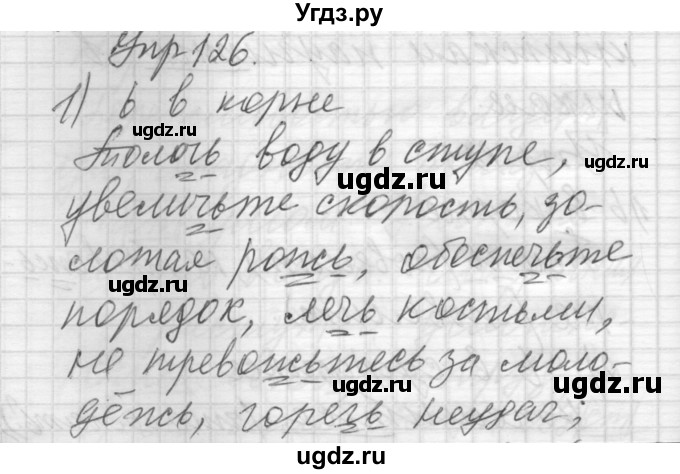 Угдз.ру
Упр 126.
1) ь в корне
Толочь воду в ступе,
увеличьте скорость, зо-
лотая рожь, обеспечьте
порядок, лечь костьми,
не тревожьтесь за моло-
дёжь, горечь неудач;
ugdz.ru
ugdz.ru
ugdz.ru
ugdz.ru
ugdz.ru
ugdz.ru
ugdz.ru
ugdz.ru
ugdz.ru
ugdz.ru
ugdz.ru